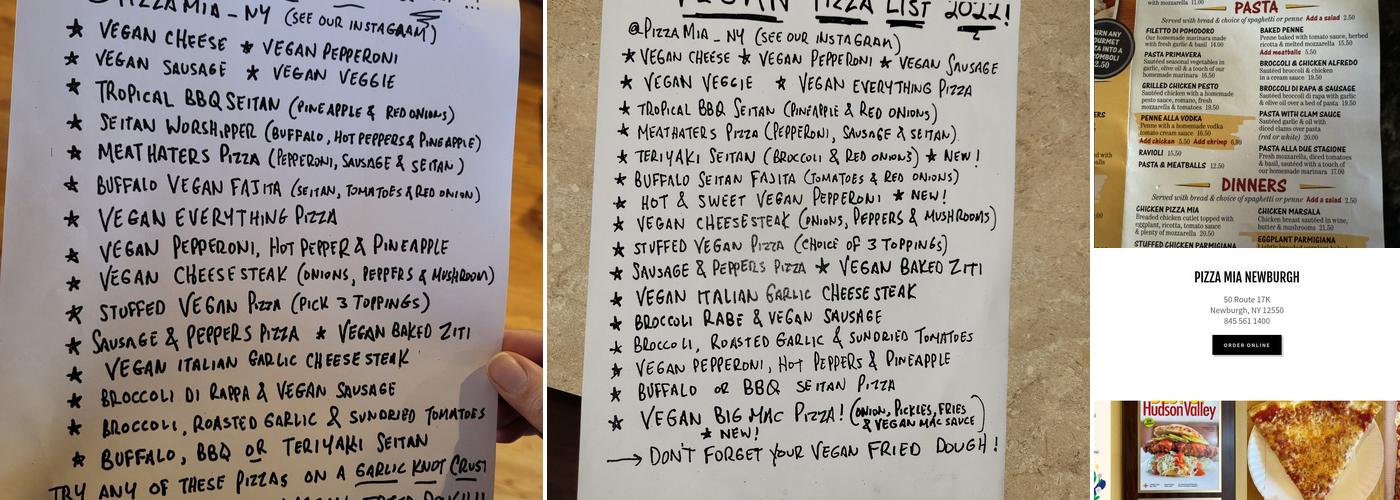 @PIZZAMIA_NY (SEE OUR INSTAGRAM)
★ VEGAN CHEESE ★ VEGAN PEPPERONI
★ VEGAN SAUSAGE ★ VEGAN VEGGIE
★ TROPICAL BBQ SEITAN (PINEAPPLE & RED ONIONS)
★ SEITAN WORSHIPPER (BUFFALO, HOT PEPPERS & PINEAPPLE)
★ MEATHATERS PIZZA (PEPPERONI, SAUSAGE & SEITAN)
★ BUFFALO VEGAN FAJITA (SEITAN, TOMATOES & RED ONION)
★ VEGAN EVERYTHING PIZZA
★ VEGAN PEPPERONI, HOT PEPPER & PINEAPPLE
★ VEGAN CHEESESTEAK (ONIONS, PEPPERS & MUSHROOM)
★ STUFFED VEGAN PIZZA (PICK 3 TOPPINGS)
★ SAUSAGE & PEPPERS PIZZA ★ VEGAN BAKED ZITI
★ VEGAN ITALIAN GARLIC CHEESESTEAK
★ BROCCOLI DI RAPPA & VEGAN SAUSAGE
★ BROCCOLI, ROASTED GARLIC & SUNDRIED TOMATOES
★ BUFFALO, BBQ OR TERIYAKI SEITAN
TRY ANY OF THESE PIZZAS ON A GARLIC KNOT CRUST
VEGAN PIZZA LIST 2022!
@PIZZAMIA_NY (SEE OUR INSTAGRAM)
★ VEGAN CHEESE ★ VEGAN PEPPERONI ★ VEGAN SAUSAGE
★ VEGAN VEGGIE ★ VEGAN EVERYTHING PIZZA
★ TROPICAL BBQ SEITAN (PINEAPPLE & RED ONIONS)
★ MEATHATERS PIZZA (PEPPERONI, SAUSAGE & SEITAN)
★ TERIYAKI SEITAN (BROCCOLI & RED ONIONS) ★ NEW!
★ BUFFALO SEITAN FAJITA (TOMATOES & RED ONIONS)
★ HOT & SWEET VEGAN PEPPERONI ★ NEW!
★ VEGAN CHEESESTEAK (ONIONS, PEPPERS & MUSHROOMS)
★ STUFFED VEGAN PIZZA (CHOICE OF 3 TOPPINGS)
★ SAUSAGE & PEPPERS PIZZA ★ VEGAN BAKED ZITI
★ VEGAN ITALIAN GARLIC CHEESESTEAK
★ BROCCOLI RABE & VEGAN SAUSAGE
★ BROCCOLI, ROASTED GARLIC & SUNDRIED TOMATOES
★ VEGAN PEPPERONI, HOT PEPPERS & PINEAPPLE
★ BUFFALO OR BBQ SEITAN PIZZA
★ VEGAN BIG MAC PIZZA! (ONION, PICKLES, FRIES
& VEGAN MAC SAUCE)
★ NEW!
→ DON'T FORGET YOUR VEGAN FRIED DOUGH!
with mozzarella 11.00
PASTA
Served with bread & choice of spaghetti or penne Add a salad 2.50
FILETTO DI POMODORO
Our homemade marinara made
with fresh garlic & basil 14.00
PASTA PRIMAVERA
Sautéed seasonal vegetables in
garlic, olive oil & a touch of our
homemade marinara 16.50
GRILLED CHICKEN PESTO
Sautéed chicken with a homemade
pesto sauce, romano, fresh
mozzarella & tomatoes 19.50
PENNE ALLA VODKA
Penne with a homemade vodka
tomato cream sauce 16.50
Add chicken 5.50 Add shrimp
RAVIOLI 15.50
PASTA & MEATBALLS 12.50
BAKED PENNE
Penne baked with tomato sauce, herbed
ricotta & melted mozzarella 15.50
Add meatballs 5.50
BROCCOLI & CHICKEN ALFREDO
Sautéed broccoli & chicken
in a cream sauce 19.50
BROCCOLI DI RAPA & SAUSAGE
Sautéed broccoli di rapa with garlic
& olive oil over a bed of pasta 19.50
PASTA WITH CLAM SAUCE
Sautéed garlic & oil with
diced clams over pasta
(red or white) 20.00
PASTA ALLA DUE STAGIONE
Fresh mozzarella, diced tomatoes
& basil, sautéed with a touch of
our homemade marinara 17.00
DINNERS
Served with bread & choice of spaghetti or penne Add a salad 2.50
CHICKEN PIZZA MIA
Breaded chicken cutlet topped with
eggplant, ricotta, tomato sauce
& plenty of mozzarella 20.50
STUFFED CHICKEN PARMIGIANA
CHICKEN MARSALA
Chicken breast sautéed in wine,
butter & mushrooms 21.50
EGGPLANT PARMIGIANA
PIZZA MIA NEWBURGH
50 Route 17K
Newburgh, NY 12550
845 561 1400
ORDER ONLINE
Hudson Valley